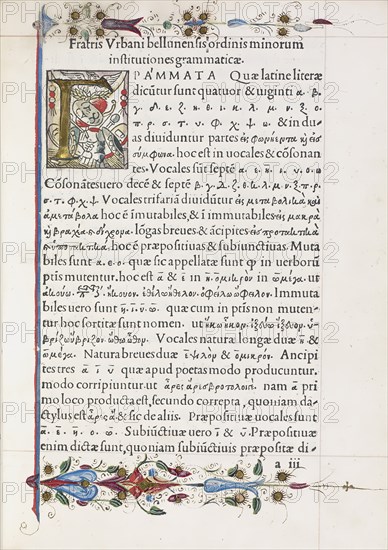 Fratris Vrbani bellunensis ordinis minorum
institutiones grammaticæ.
ΓΡΑΜΜΑΤΑ Quæ latine literæ
dicūtur sunt quatuor & uiginti α. β.
γ. δ. ε. ζ. η. θ. ι. κ. λ. μ. ν. ξ. ο.
π. ρ. σ. τ. υ. φ. χ. ψ. ω. & in du-
as diuiduntur partes εἰς φωνήεντα ἢ εἰς
σύμφωνα. hoc est in vocales & cōsonan
tes. Vocales sūt septē α. ε. η. ι. ο. υ. ω
Cōsonātes uero decē & septē β. γ. δ. ζ. θ. κ. λ. μ. ν. ξ. π. ρ.
σ. τ. φ. χ. ψ. Vocales trifaria diuidūtur εἰς μεταβολικὰ καὶ
ἀμετάβολα hoc ē imutabiles, & ī immutabiles εἰς μακρὰ
ἢ βραχέα κ δίχρονα. lōgas breues & ācipites εἰς προτακτικὰ
κ ὑποτακτικὰ. hoc ē præpositiuas & subiunctiuas. Muta
biles sunt α. ε. ο. quæ sic appellatæ sunt φ in uerborū
ptis mutentur. hoc est ᾱ & ε̄ in η̄. ὀμικρὸν in ω̄μέγα. ut
ἀκούω. ἤκουον. ἐθέλω ἤθελον. ὀφείλω ὤφελον. Immuta
biles uero sunt η̄. ῑ. ῡ. ω̄. quæ cum in pr̄is non muten-
tur hoc sortitæ sunt nomen. ut ἥκω ἧκον. ἱξεύω ἵξευον. ὑ-
βρίζω ὕβριζον. ὠθῶ ὤθον. Vocales natura longæ duæ η̄ &
ω̄μέγα. Natura breues duæ ἐψιλὸν & ὀμικρον. Ancipi
tes tres ᾱ ῑ ῡ quæ apud poetas modo producuntur.
modo corripiuntur. ut ἆρες ἄρες βροτολοιγέ. nam ᾱ pri
mo loco producta est, secundo correpta, quoniam da-
ctylus est ἆρες ἄ & sic de aliis. Præpositiuæ uocales sunt
ᾱ. ε̄. η̄. ο̄. ω̄. Subiūctiuæ uero ῑ & ῡ. Præpositiuæ
enim dictæ sunt, quoniam subiūctiuis præpositæ di-
a iii